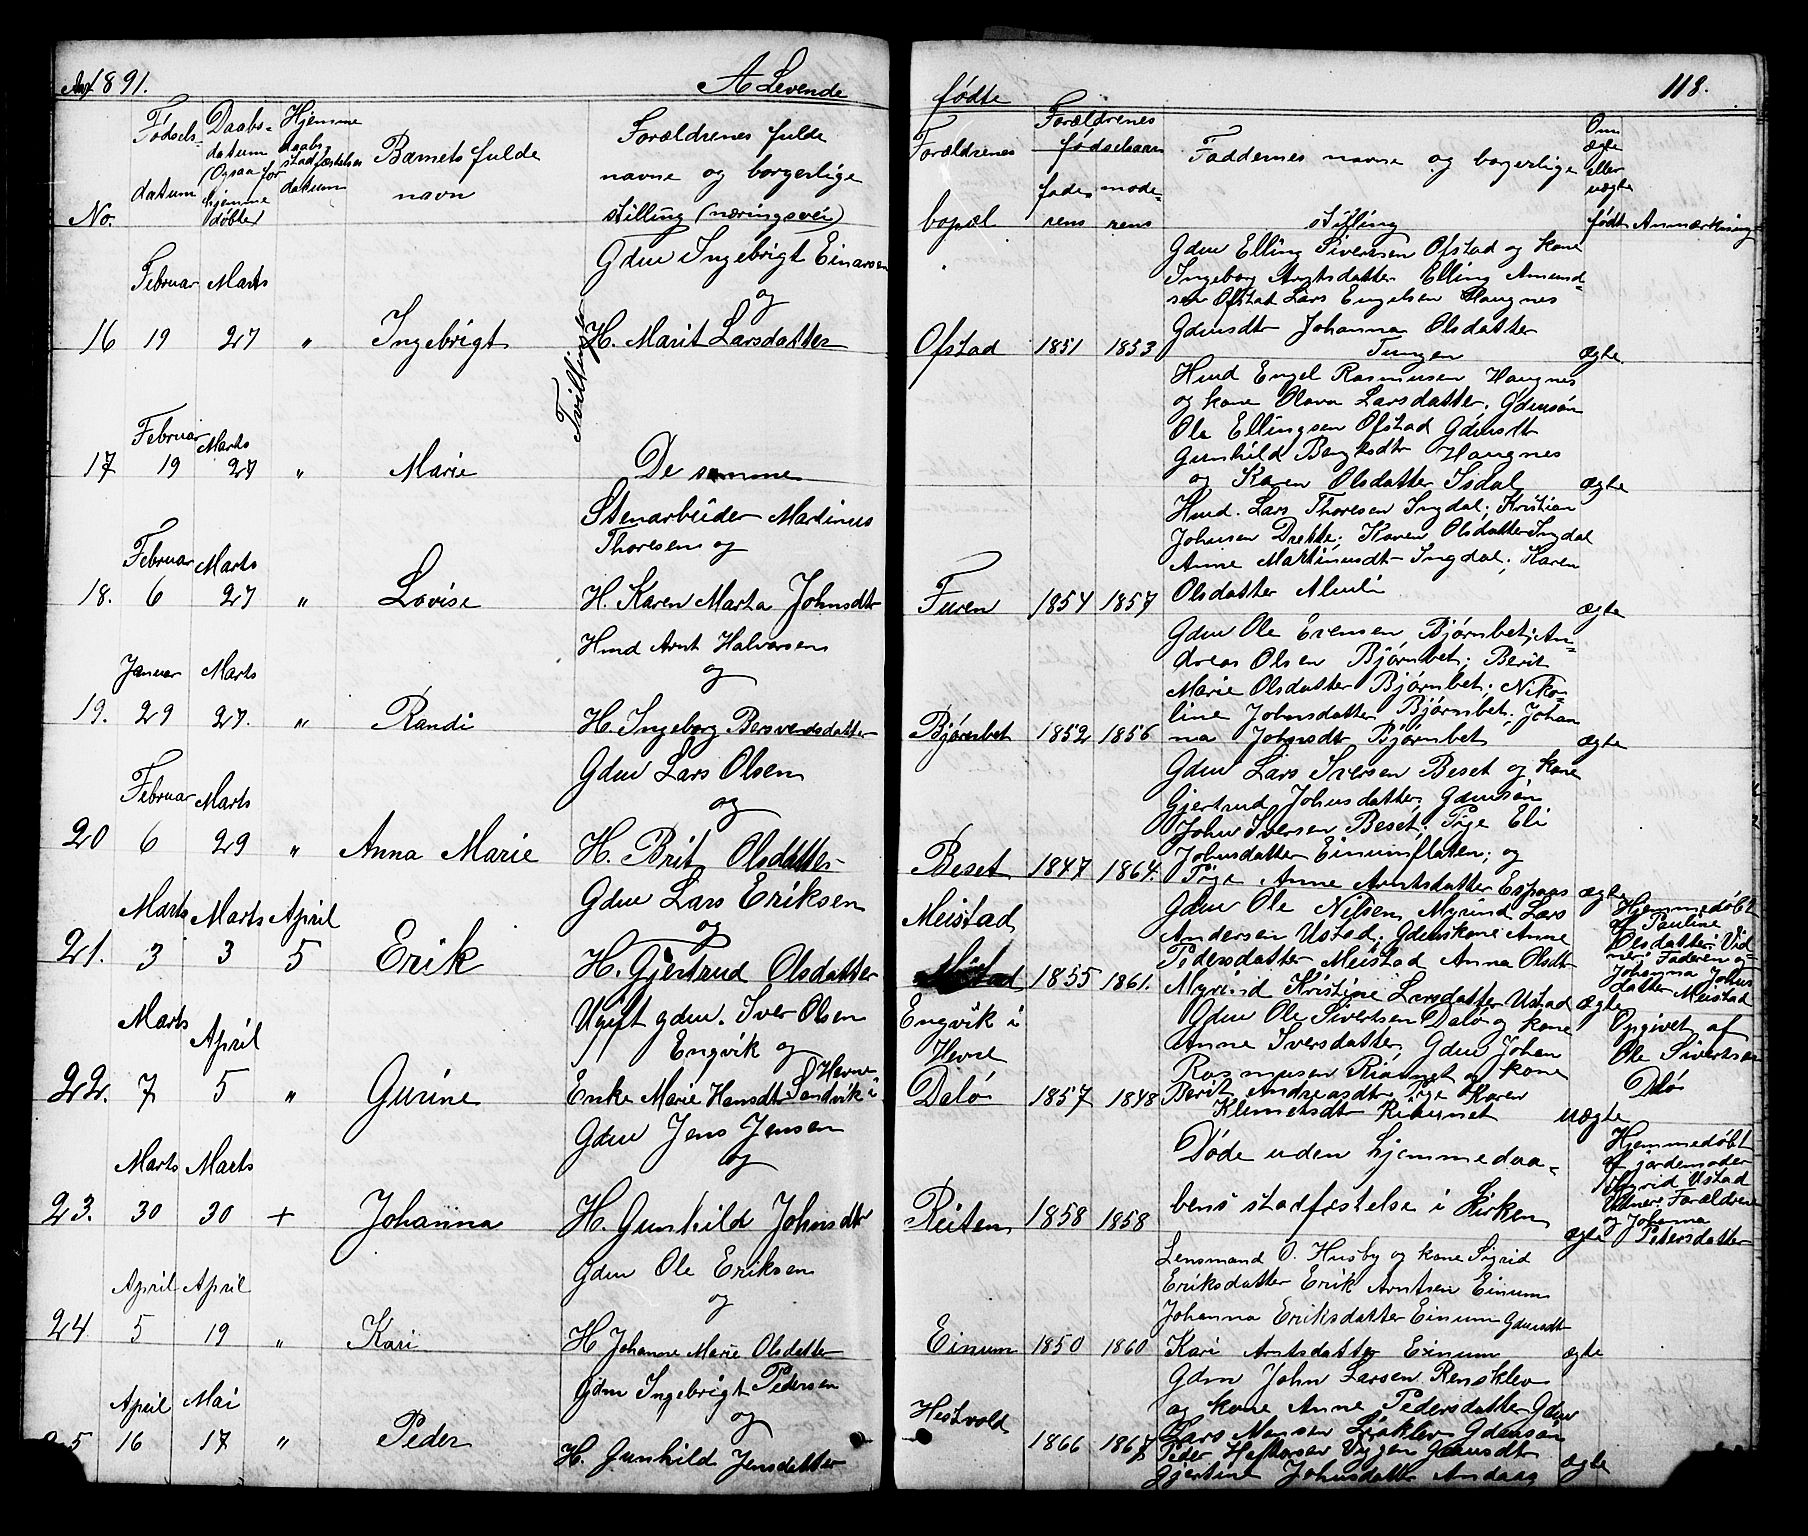 Aar 1891.
A Levende
fødte
118.
No.
Fødsels-
datum
Daabs-
datum
(Ogsaa for
hjemme
døbte)
Hjemme
daabs
stadfæstelses
datum
Barnets fulde
navn
Forældrenes fulde
navne og borgerlige
stilling (næringsvei)
Forældrenes
bopæl
Forældrenes
fødselsaar
fade- mode-
rens rens
Faddernes navne og borgerlige
stilling
Om
ægte
eller
uægte
født
Anmærkning
Februar Marts
16 19 27 "
Ingebrigt
Gdm Ingebrigt Einarsen
og
H. Marit Larsdatter
Tvillinger
Ofstad 1851 1853
Gdm Elling Sivertsen Ofstad og kone
Ingeborg Arntsdatter Elling Amund-
sen Ofstad Lars Engelsen Haugnes
Gdmsdtr Johanna Olsdatter
Tungen
ægte
Februar Marts
17 19 27 "
Marie
De samme
Hmd Engel Rasmusen Haugnes
og kone Olava Larsdatter, Gdmsøn
Ole Ellingsen Ofstad Gdmsdtr
Gunhild Bengtsdtr Haugnes
og Karen Olsdatter Isdal
ægte
Februar Marts
18. 6 27 "
Lovise
Stenarbeider Martinus
Thoresen og
H. Karen Marta Johnsdtr
Furen 1854 1857
Hmd. Lars Thoresen Ingdal; Kristian
Johnsen Drette; Karen Olsdatter Ingdal
Anne Martinusdtr Ingdal; Karen
Olsdatter Almli
ægte
Januar Marts
19. 29 27. "
Randi
Hmd Arnt Halvorsen
og
H. Ingeborg Bersvendsdatter
Bjørnbet 1852 1856
Gdm Ole Evensen Bjørnbet; An-
dreas Olsen Bjørnbet; Berit
Marie Olsdatter Bjørnbet; Niko-
line Johnsdatter Bjørnbet; Johan
na Johnsdtr Bjørnbet
ægte
Februar Marts
20 6 29 "
Anna Marie
Gdm Lars Olsen
og
H. Brit Olsdatter
Beset 1847 1864.
Gdm Lars Iversen Beset og kone
Gjertrud Johnsdatter; Gdmsøn
John Iversen Beset; Pige Eli
Johnsdatter Einumflaten; og
Pige Anne Arntsdatter Espaas
ægte
Marts Marts April
21. 3 3 5
Erik
Gdm Lars Eriksen
og
H. Gjertrud Olsdatter
Meistad
1855 1861.
Gdm Ole Nilsen Myrind Lars
Andersen Ustad; Gdmskone Anne
Pedersdatter Meistad Anna Olsdtr
Myrind Kristine Larsdatter Ustad
ægte
Hjemmedøbt
af Pauline
Olsdatter: Vid
ner: Faderen og
Johanna Johns
datter Meistad
Marts April
22. 7 5 "
Gurine
Ugift gdm. Iver Olsen
Engvik og
Enke Marie Hansdtr Sandvik i
Hevne
Engvik i
Hevne
Dalø 1857 1848
Gdm Ole Sivertsen Dalø og kone
Anne Iversdatter Gdm Johan
Rasmusen og kone
Berit Andreasdtr Pige Karen
Klimetsdtr
uægte
Opgivet af
Ole Sivertsen
Dalø
Marts Marts
23. 30 30 +
Johanna
Gdm Jens Jensen
og
H. Gunhild Johnsdtr
Reiten 1858 1858
Døde uden hjemmedaa-
bens stadfestelse i Kirken
ægte
Hjemmedøbt
af jordemoder
Ingrid Ustad
Vidner: Forældrene
og Johanna
Petersdatter
April April
24 5 19 "
Kari
Gdm Ole Eriksen
og
H Johanne Marie Olsdatter
Einum 1850 1860
Lensmand O. Husby og kone Sigrid
Eriksdatter Erik Arntsen Einum
Johanna Eriksdatter Einum Gdmsdtr
Kari Arntsdatter Einum
ægte
April Mai
25 16 17 "
Peder
Gdm Ingebrigt Pedersen
og
H. Gunhild Jensdatter
Hestvold
1866 1867
Gdm John Larsen Rensklev
og kone Anne Pedersdatter Gdm
Lars Monsen Gdmsøn
Peder Viggen Gdmsdtr
Gjertine Johnsdatter
ægte